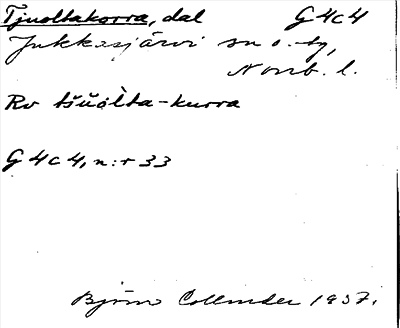 Tjuoltakorra, dal G4c4
Jukkasjärvi sn o. tg,
Norrb. l.
Rv tšŭòlta-kurra
G4c4, n:r 33
Björn Collinder 1937.